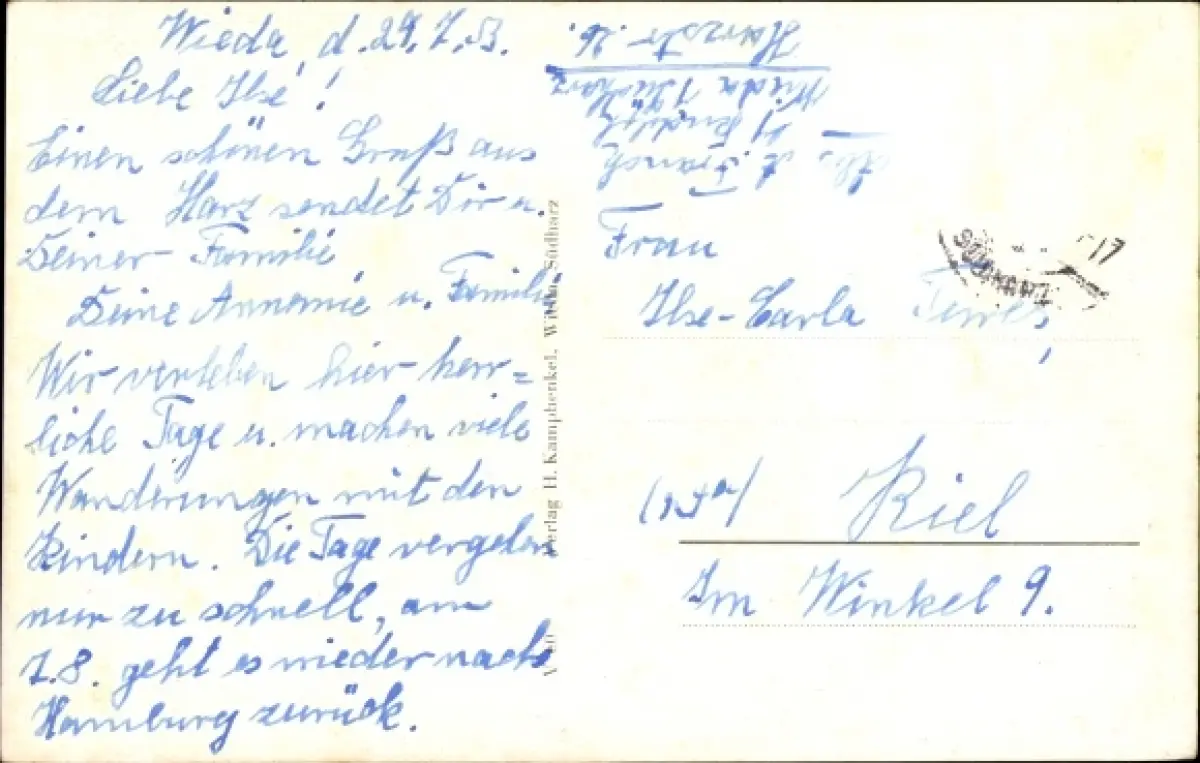 Wieda, d. 29.7.53.
Liebe Ilse!
Einen schönen Gruß aus
dem Harz sendet Dir u.
Deiner Familie,
Deine Annemie, u. Familie
Wir verleben hier herr=
liche Tage u. machen viele
Wanderungen mit den
Kindern. Die Tage vergehen
nur zu schnell, am
1.8. geht es wieder nach
Hamburg zurück.
Verlag H. Kamphenkel, Wieda, Südharz
Wieda / Südharz
Harzstr. 26.
SÜDHARZ
Frau
Ilse-Carla
Kiel
Im Winkel 9.